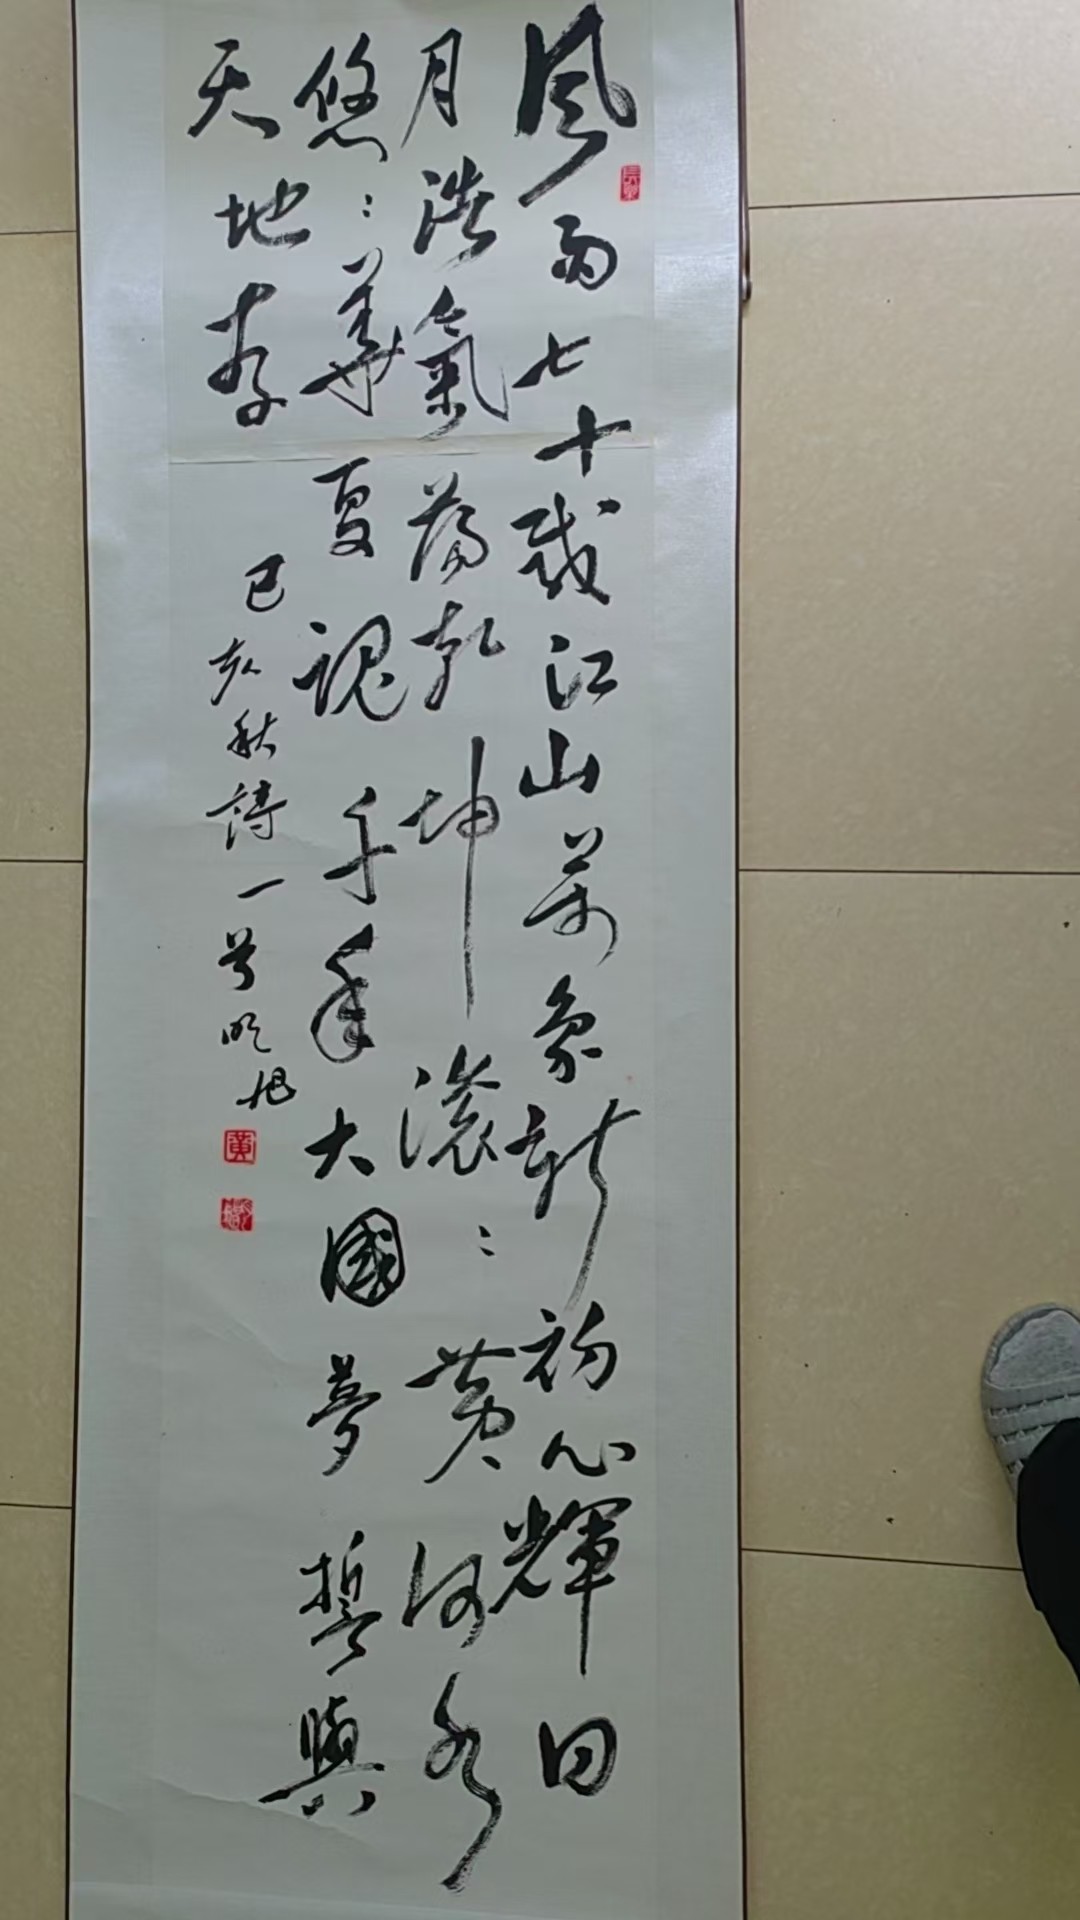 風雨七十載江山萬象新初心輝日
月浩氣蕩乾坤滾:黄河水
悠:華夏魂千年大國夢誓與
天地存
己亥秋詩一首明旭
黄